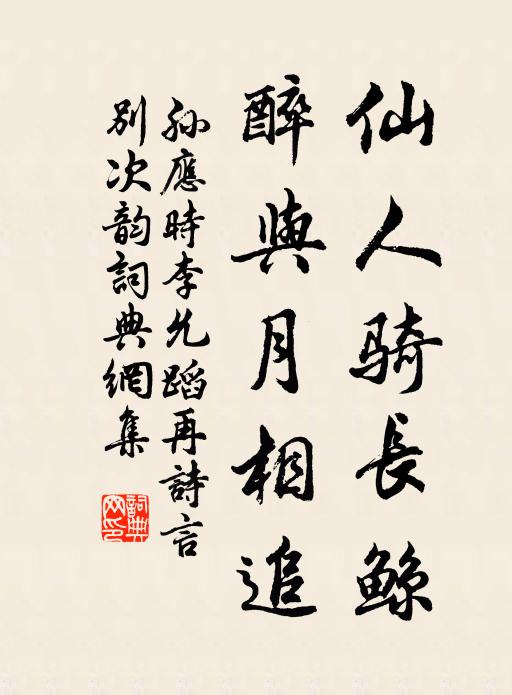 仙人骑長鲸
醉與月相追
孙應時李允蹈再詩言
别次韵詞典網集
詞典网印